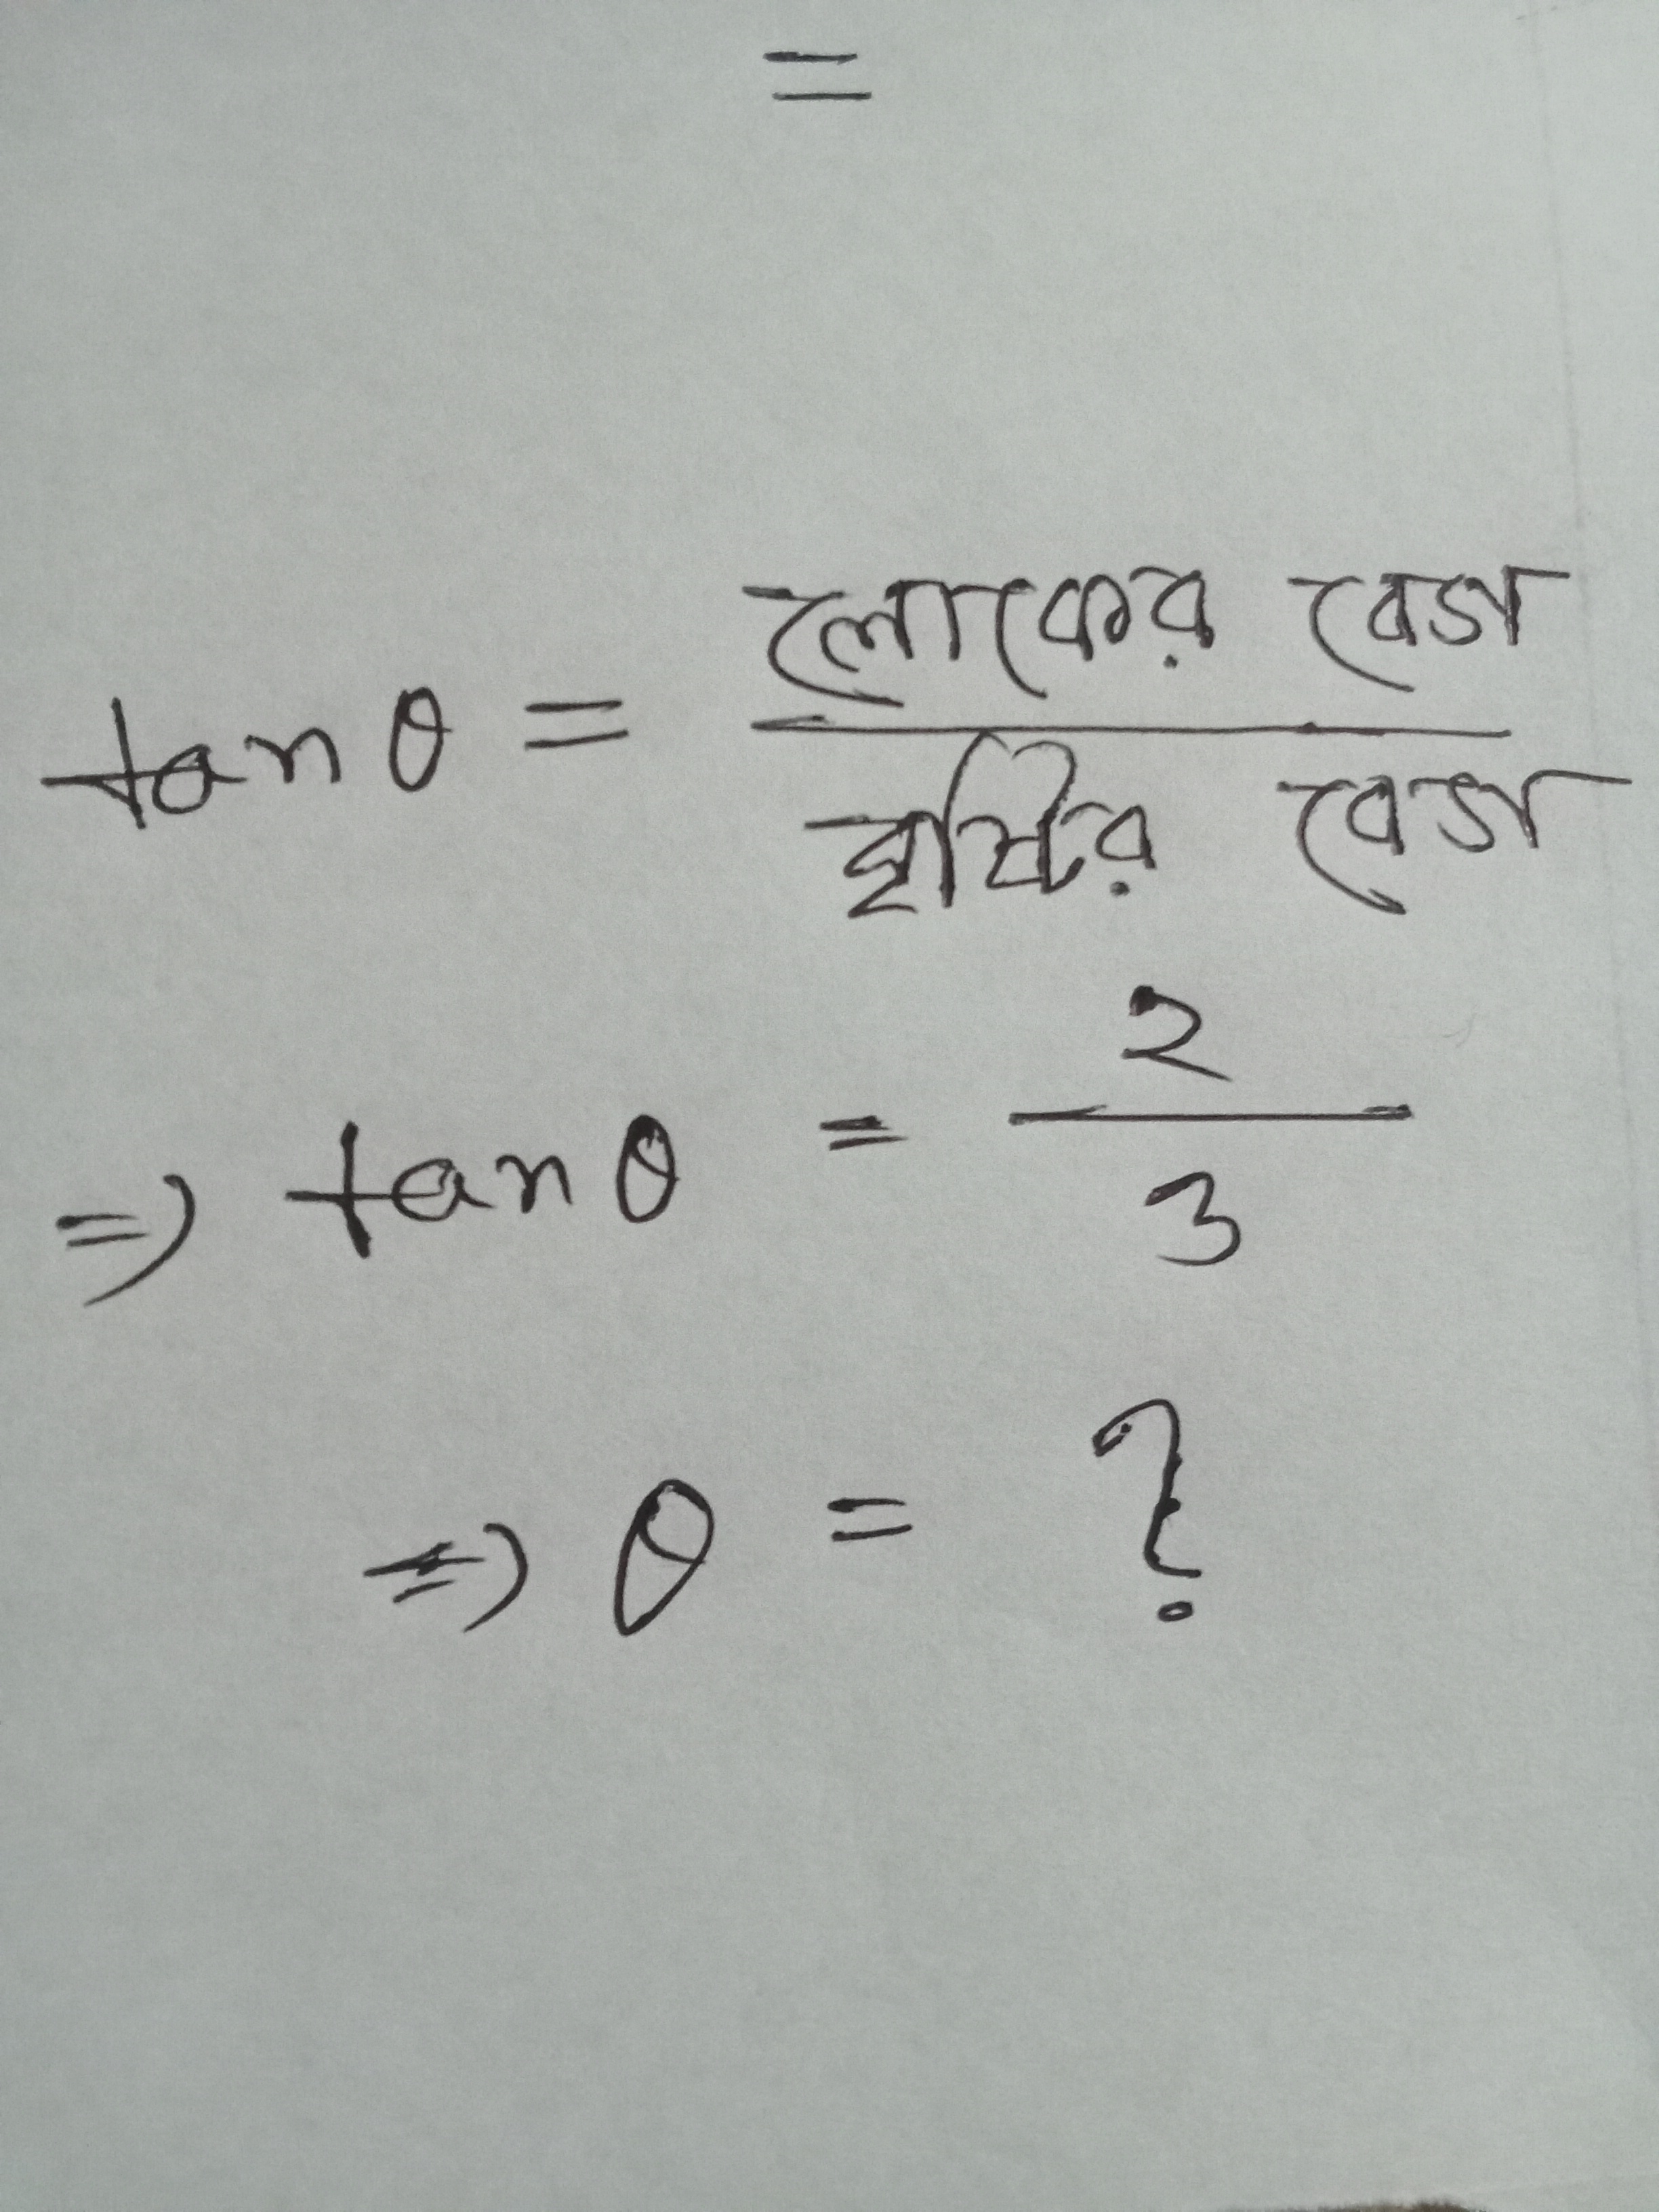 =
tan θ = লোকের বেগ / বৃষ্টির বেগ
⇒ tan θ = 2 / 3
⇒ θ = ?